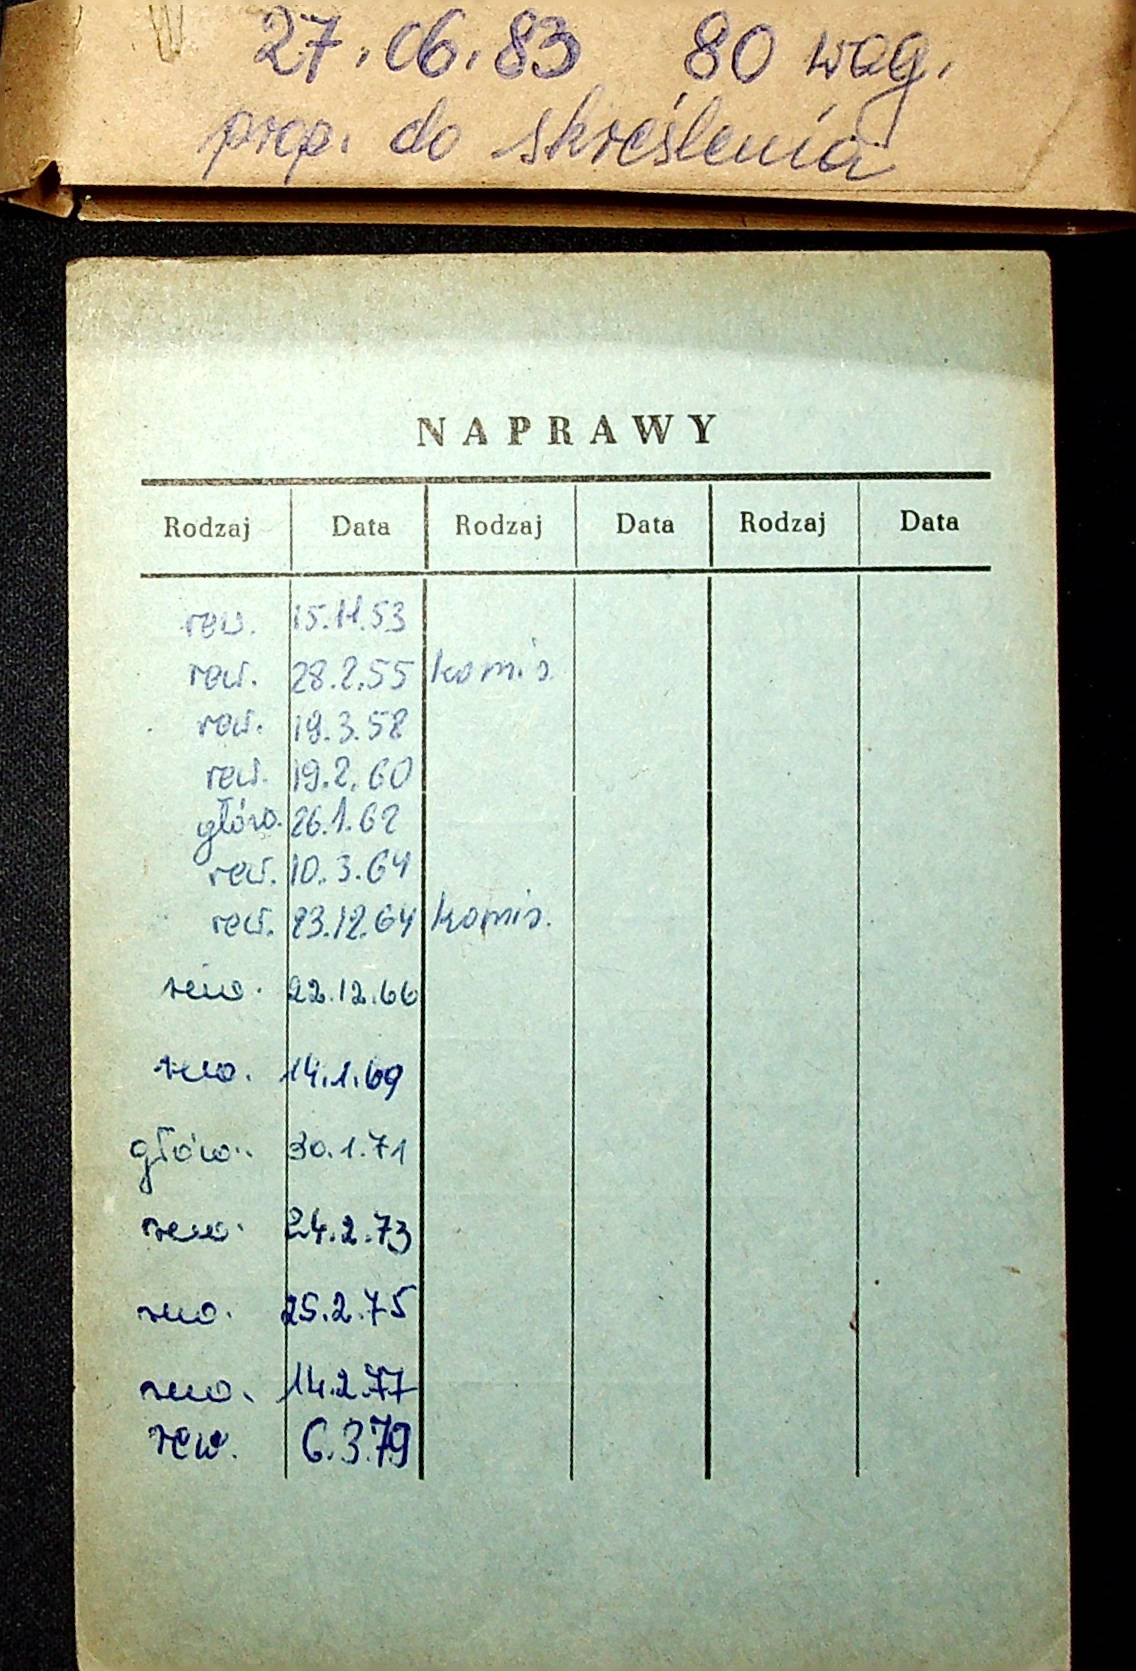 27.06.83 80 wag.
prop. do skreślenia
NAPRAWY
Rodzaj Data Rodzaj Data Rodzaj Data
rew. 15.11.53
rew. 28.2.55 komis.
rew. 19.3.58
rew. 19.2.60
główn. 26.1.62
rew. 10.3.64
rew. 23.12.64 komis.
rew. 22.12.66
rew. 14.1.69
główn. 30.1.71
rew. 24.2.73
rew. 25.2.75
rew. 14.2.77
rew. 6.3.79